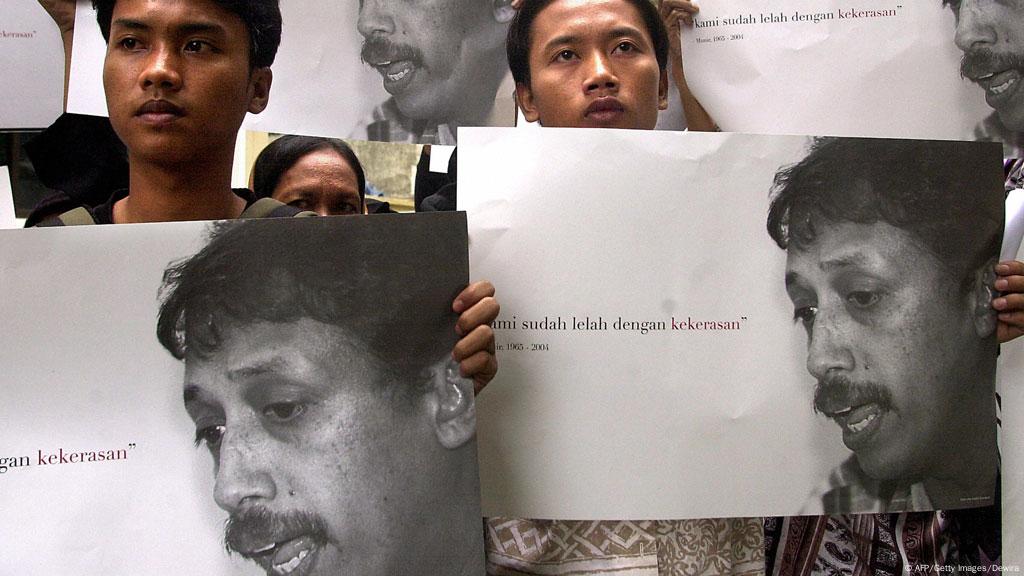 ekerasan”
“kami sudah lelah dengan kekerasan”
Munir, 1965 - 2004
ami sudah lelah dengan kekerasan”
ir, 1965 - 2004
gan kekerasan”
© AFP/Getty Images/Dewira